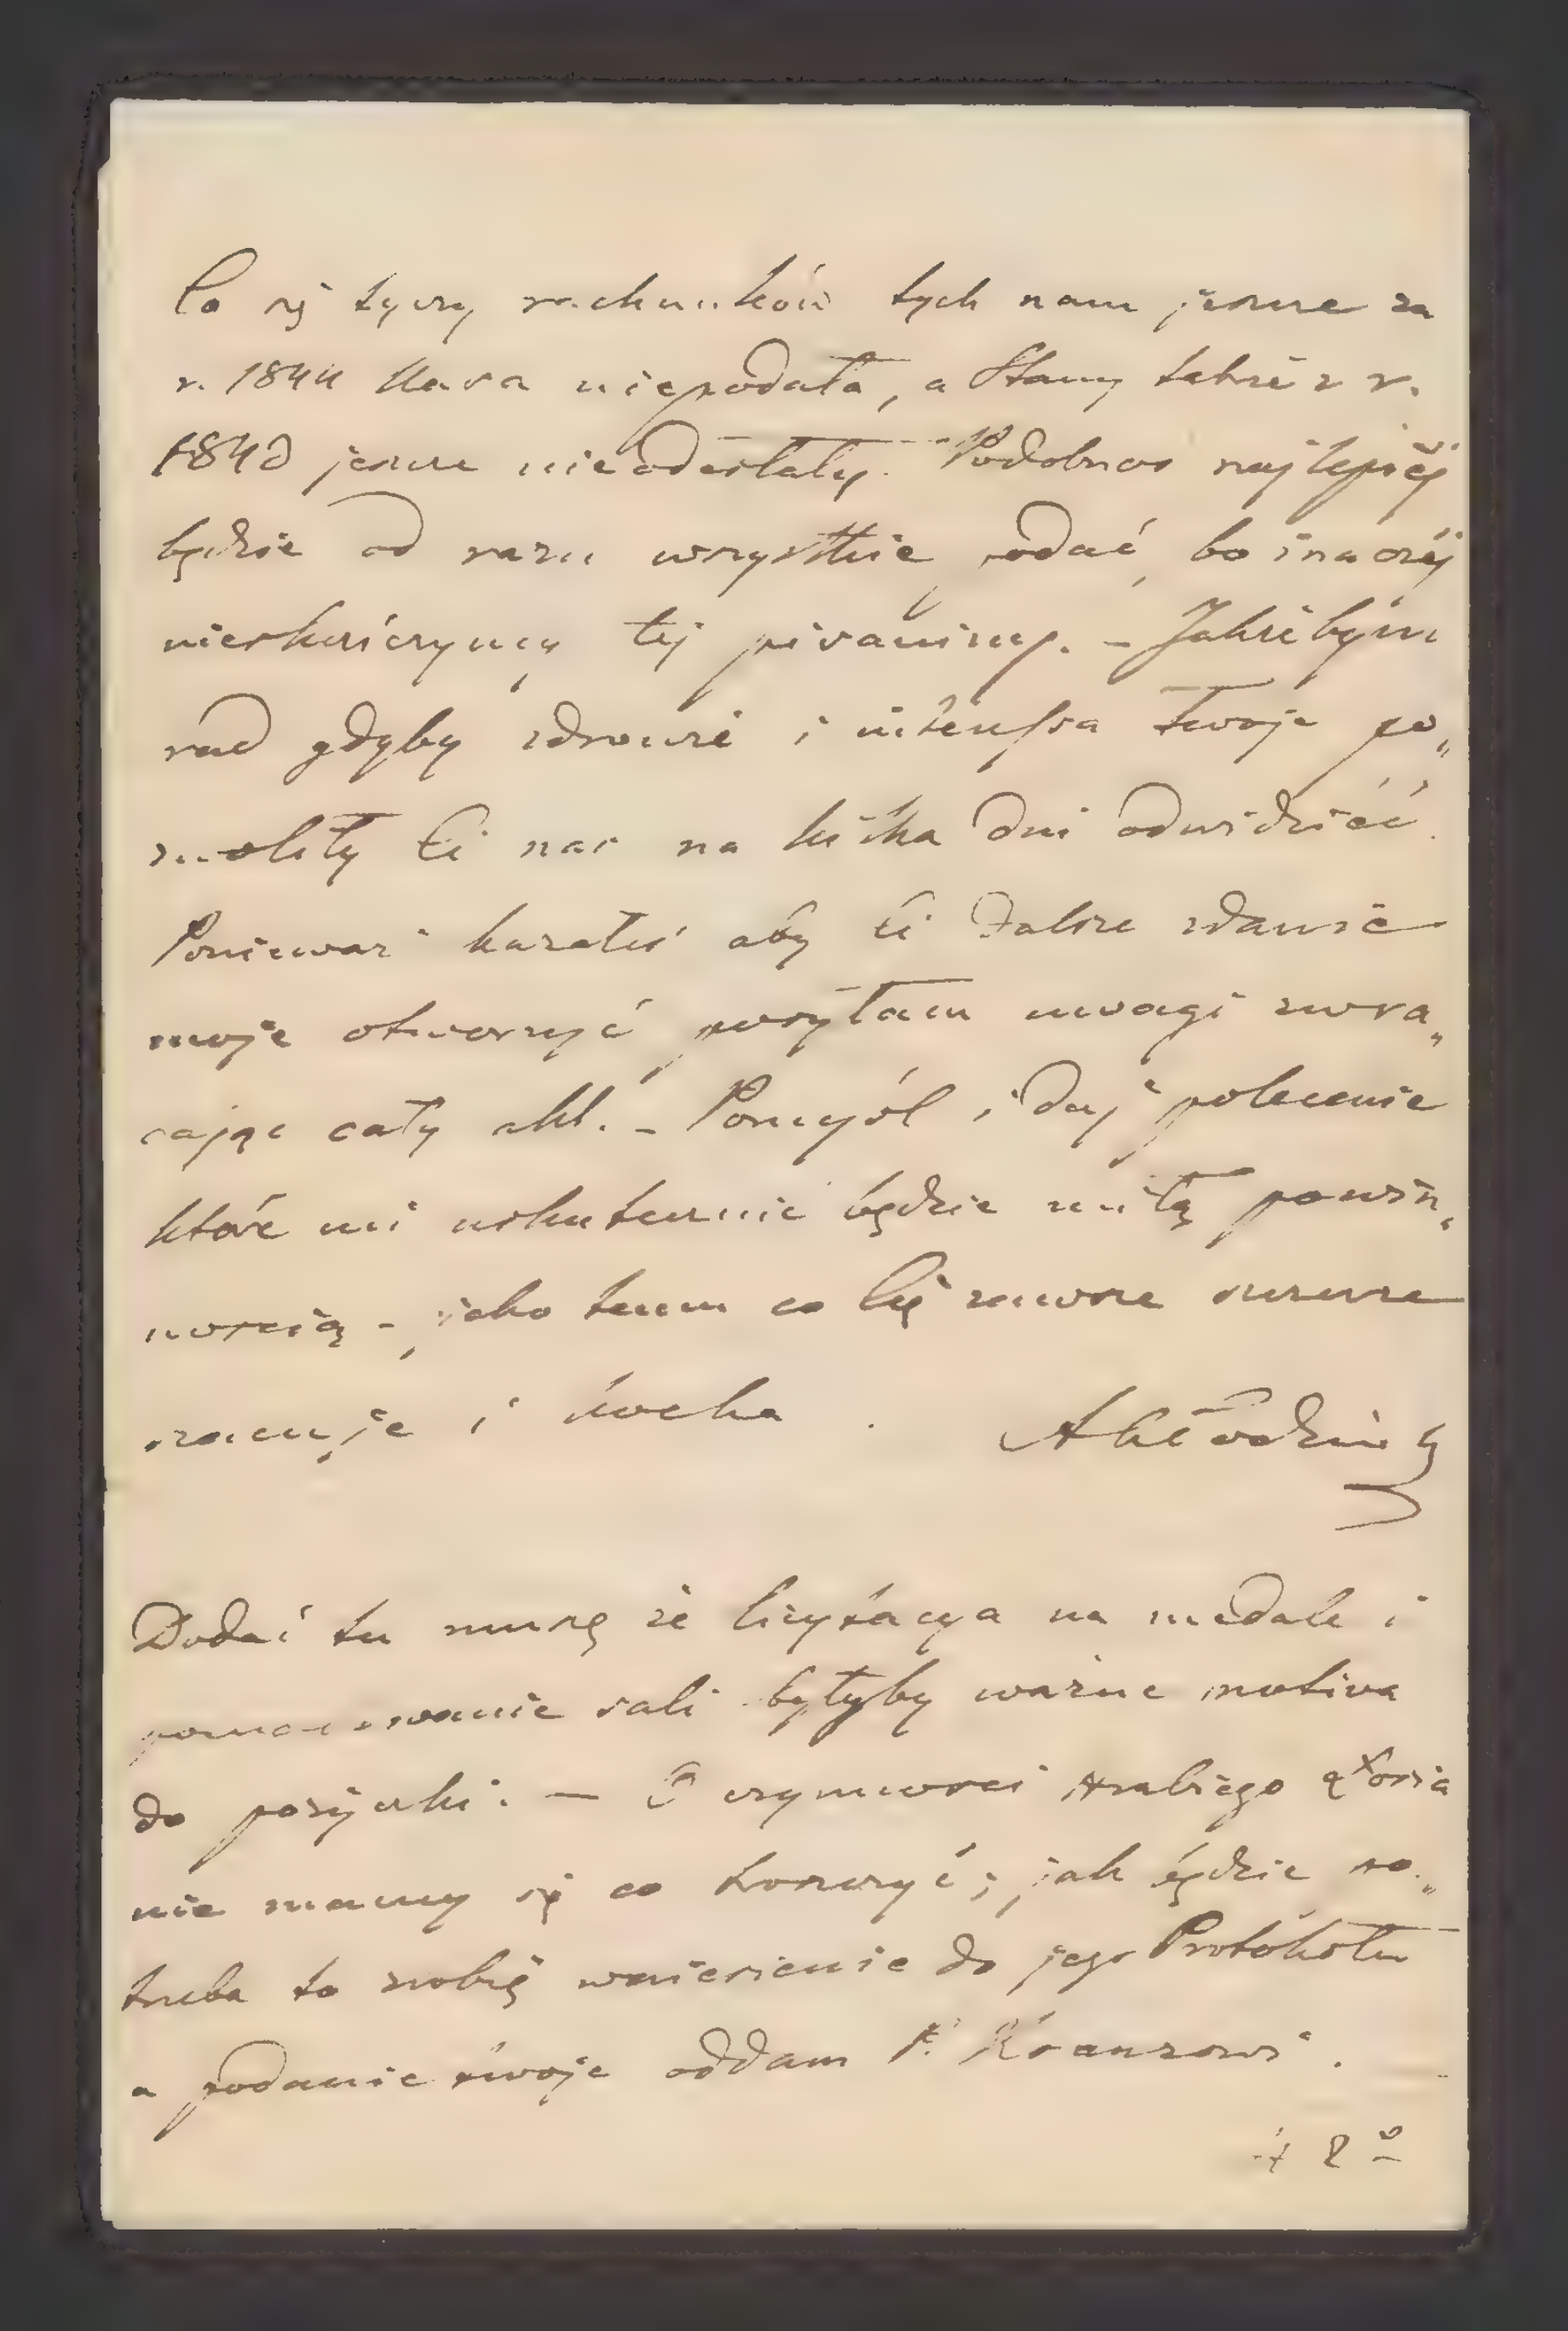 Co się tyczy rachunków tych nam jeszcze za
r. 1844 Kassa niepodała, a Stany także z r.
1843 jeszcze nieodesłały. Podobnos najlepiéj
będzie od razu wszystkie oddać, bo inaczéj
nieskończymy téj pisaniny. – Jakżebým
rad gdyby zdrowié i interessa twoje po„
zwoliły Ci nas na kilka dni odwidzić.
Ponieważ kazałeś aby Ci dalsze zdanie
moje otworzyć posyłam uwagi zwra„
cając cały akt. – Pomyśl i daj polecenie
które mi uskutecznić będzie miłą powin„
nością – jako temu co Cię zawsze szczerze
szacuje i kocha. AKłodziński
Dodać tu muszę że licytacya na medale i
pomalowanie sali byłyby ważne motiva
do pożyczki. – O czynności hrabiego
nie mamy się co troszczyć; jak będzie po„
trzeba to zrobię wniesienie do jego Protokołu
a podanie swoje oddam P. Kranzowi.